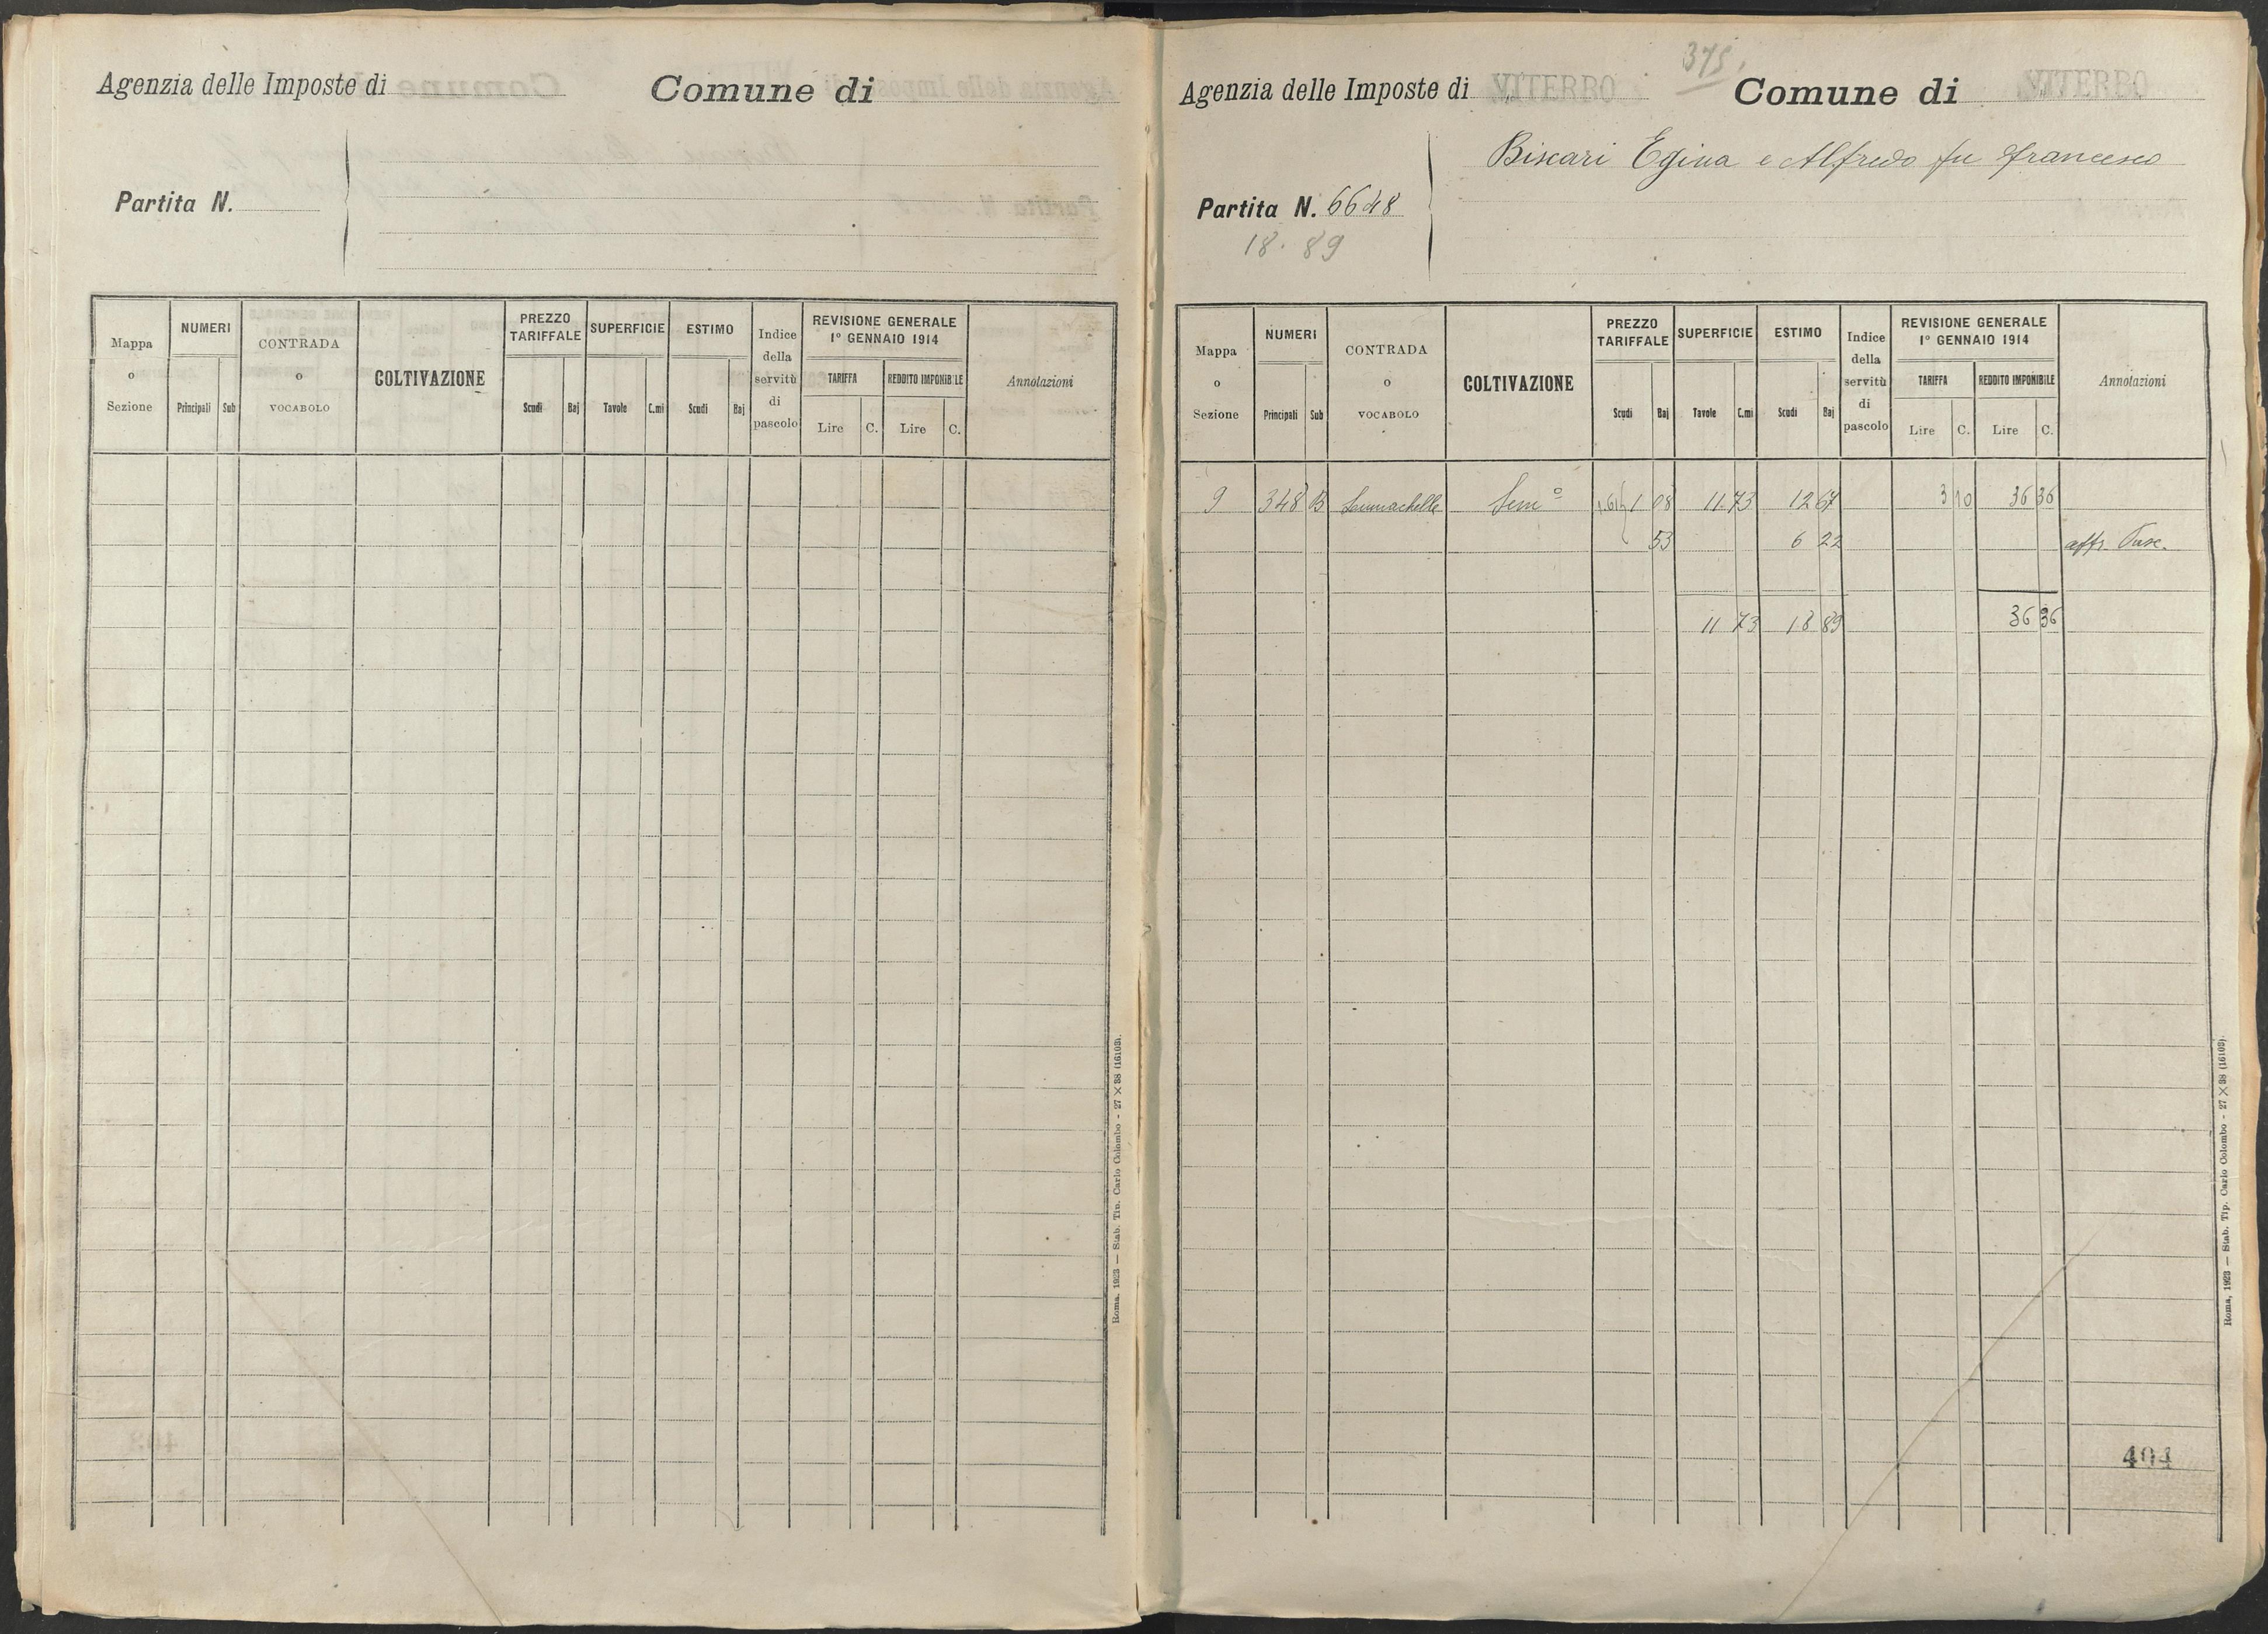 Agenzia delle Imposte di Comune di
Partita N.
Mappa o Sezione NUMERI Principali Sub CONTRADA o VOCABOLO COLTIVAZIONE PREZZO TARIFFALE Scudi Baj SUPERFICIE Tavole C.mi ESTIMO Scudi Baj Indice della servitù di pascolo REVISIONE GENERALE 1° GENNAIO 1914 TARIFFA Lire C. REDDITO IMPONIBILE Lire C. Annotazioni
Roma, 1923 — Stab. Tip. Carlo Colombo - 27 X 38 (16103).
375.
Agenzia delle Imposte di VITERBO Comune di VITERBO
Biscari Egina e Alfredo fu Francesco
Partita N. 6648
18. 89
Mappa o Sezione NUMERI Principali Sub CONTRADA o VOCABOLO COLTIVAZIONE PREZZO TARIFFALE Scudi Baj SUPERFICIE Tavole C.mi ESTIMO Scudi Baj Indice della servitù di pascolo REVISIONE GENERALE 1° GENNAIO 1914 TARIFFA Lire C. REDDITO IMPONIBILE Lire C. Annotazioni
9 348 B Sem° 1.61 1 08 11.73 12 67 3 10 36 36
53 6 22 affr. Pasc.
11 73 18 89 36 36
404
Roma, 1923 — Stab. Tip. Carlo Colombo - 27 X 38 (16103).